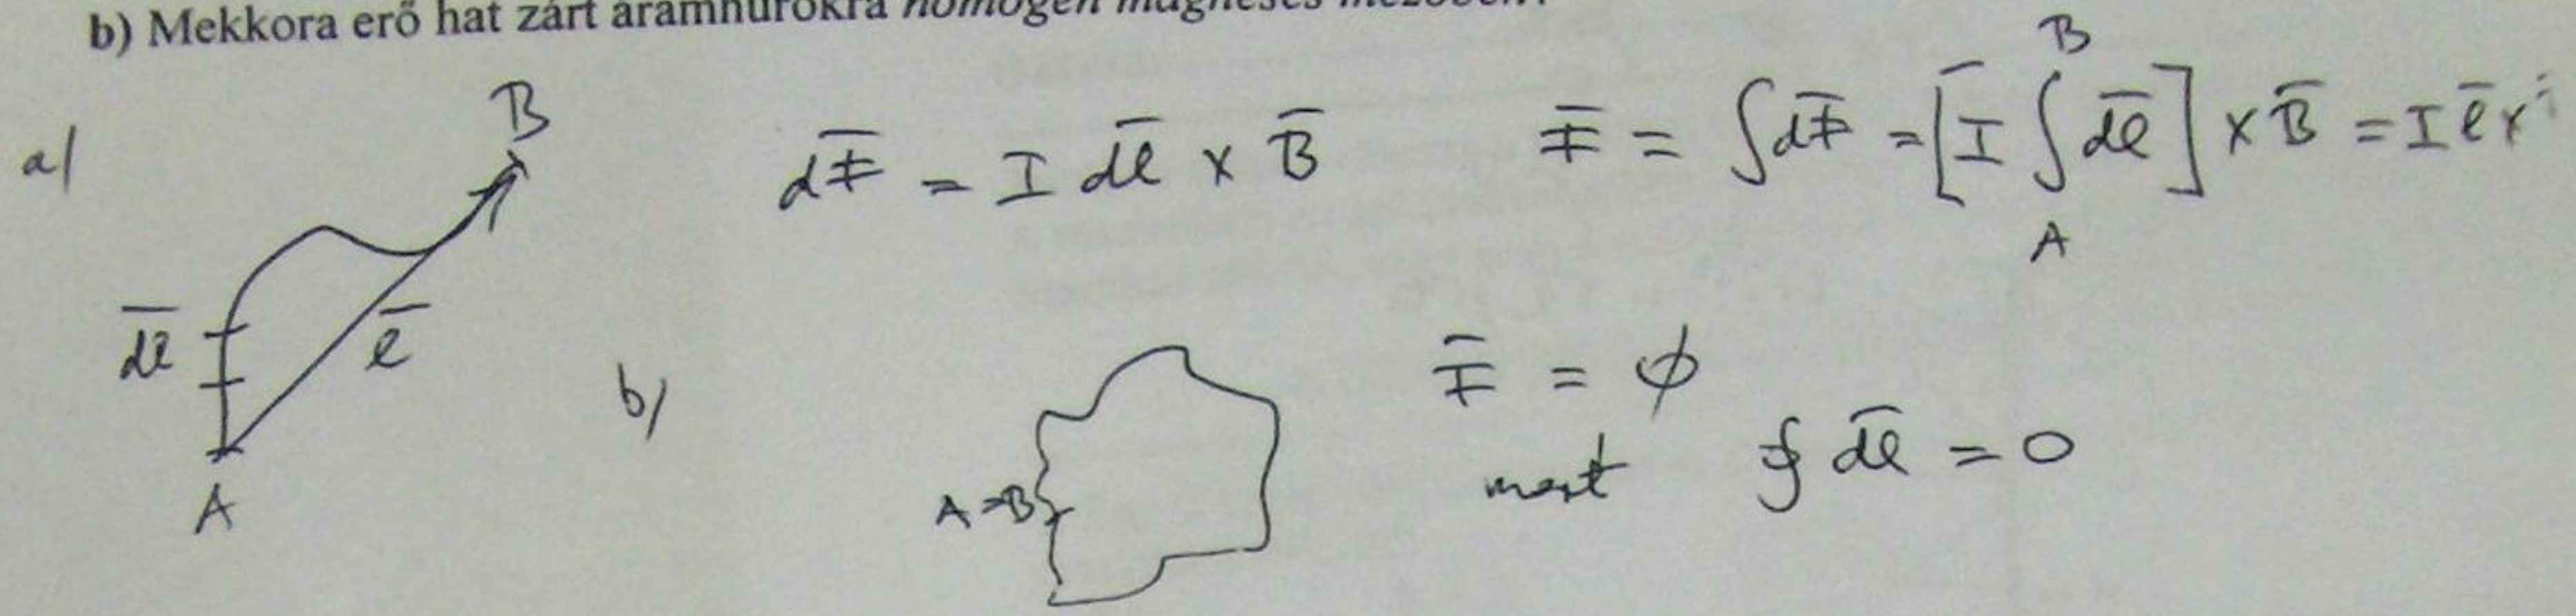 b) Mekkora erő hat zárt áramhurokra homogén mágneses mezőben?
a/
B
d̅F̅ = I d̅l̅ × B̅
F̅ = ∫dF̅ = [I ∫ d̅l̅] × B̅ = I l̅ ×
B
A
d̅l̅
l̅
A
b/
A=B
F̅ = ϕ
mert ∮ d̅l̅ = 0